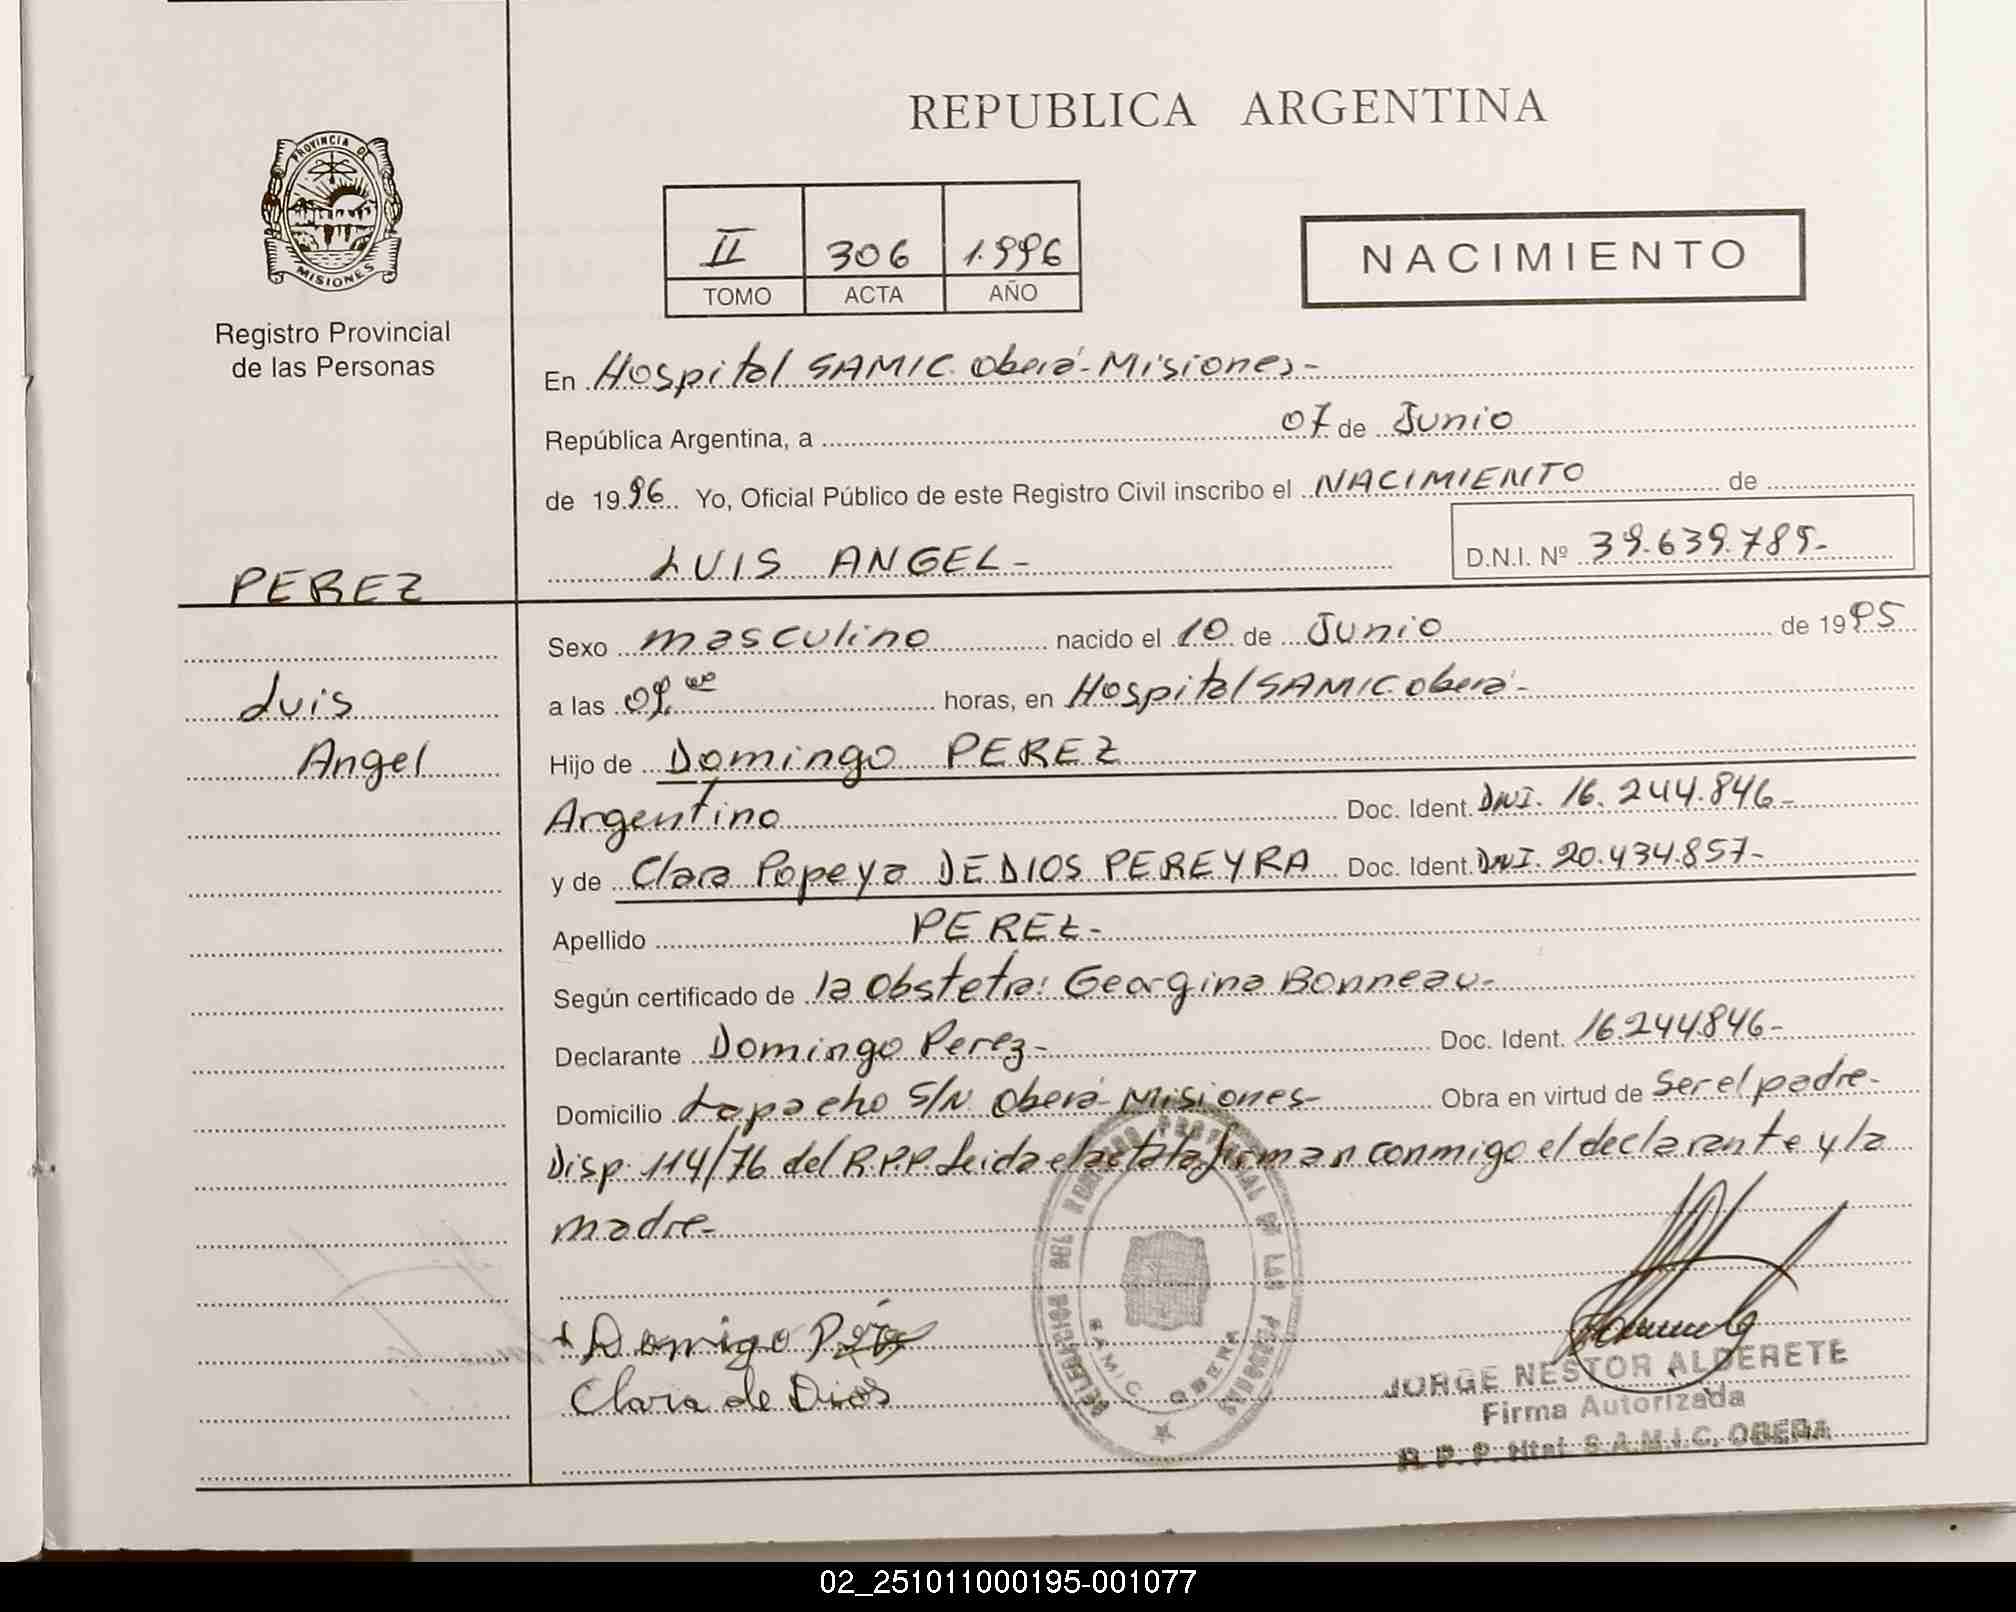 REPUBLICA ARGENTINA
PROVINCIA DE
MISIONES
Registro Provincial
de las Personas
II 306 1.996
TOMO ACTA AÑO
NACIMIENTO
En Hospital SAMIC Oberá-Misiones-
República Argentina, a 07 de Junio
de 1996 Yo, Oficial Público de este Registro Civil inscribo el NACIMIENTO de
LUIS ANGEL- D.N.I. Nº 39.639.785-
PEREZ
Luis
Angel
Sexo masculino nacido el 10 de Junio de 1995
a las 09.00 horas, en Hospital SAMIC Oberá-
Hijo de Domingo PEREZ
Argentino Doc. Ident. DNI. 16.244.846-
y de Clara Popeya DE DIOS PEREYRA Doc. Ident. DNI. 20.434.857-
Apellido PEREZ-
Según certificado de la Obstetra: Georgina Bonneau-
Declarante Domingo Perez- Doc. Ident. 16.244.846-
Domicilio Lapacho S/N Oberá-Misiones- Obra en virtud de Ser el padre-
Disp. 114/76 del R.P.P. Leida el acta la firman conmigo el declarante y la
madre-
DELEGACION DEL REGISTRO PROVINCIAL DE LAS PERSONAS
SAMIC OBERA
Domigo
Clara de Dios
JORGE NESTOR ALDERETE
Firma Autorizada
R. P. P. Htal. S.A.M.I.C. OBERA
02_251011000195-001077